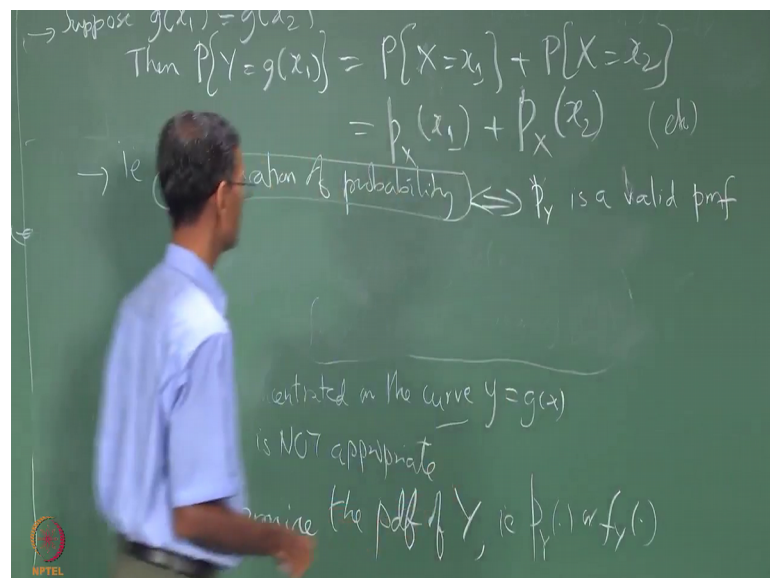 → Suppose g(x₁) = g(x₂)
Then P{Y = g(x₁)} = P{X = x₁} + P{X = x₂}
= p_X(x₁) + p_X(x₂) (ok)
→ ie of probability ⟺ p_Y is a valid pmf
on the curve y = g(x)
is NOT appropriate
the pdf of Y, ie p_Y(.) or f_Y(.)
NPTEL